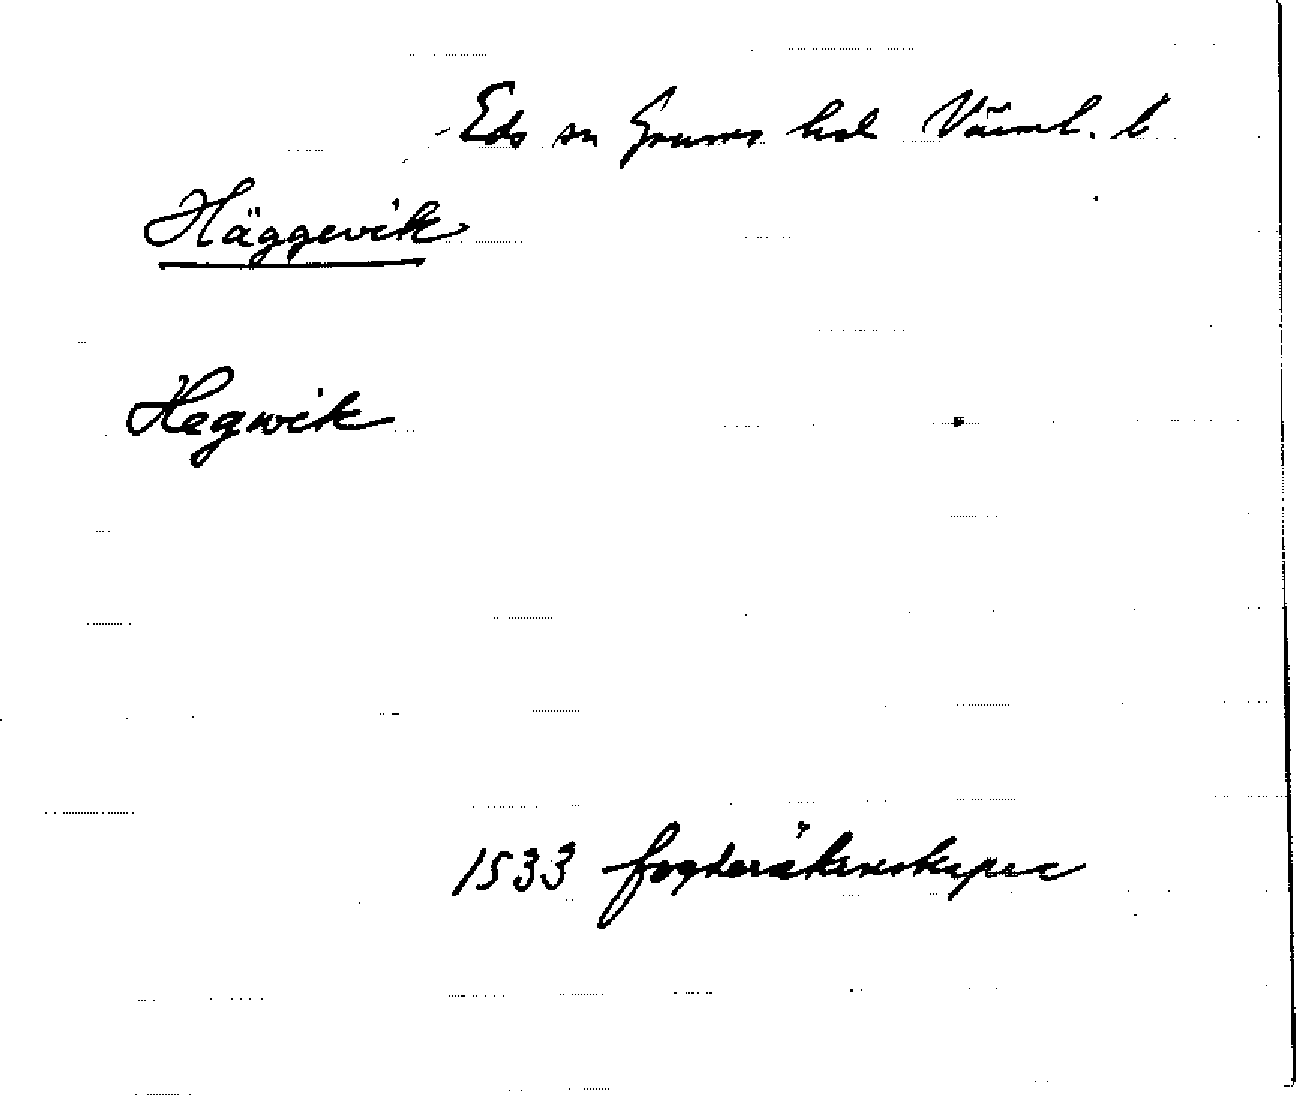 Eds sn Grums hd Värml. l
Häggevik
Hegwik
1533 fogderäkenskaper